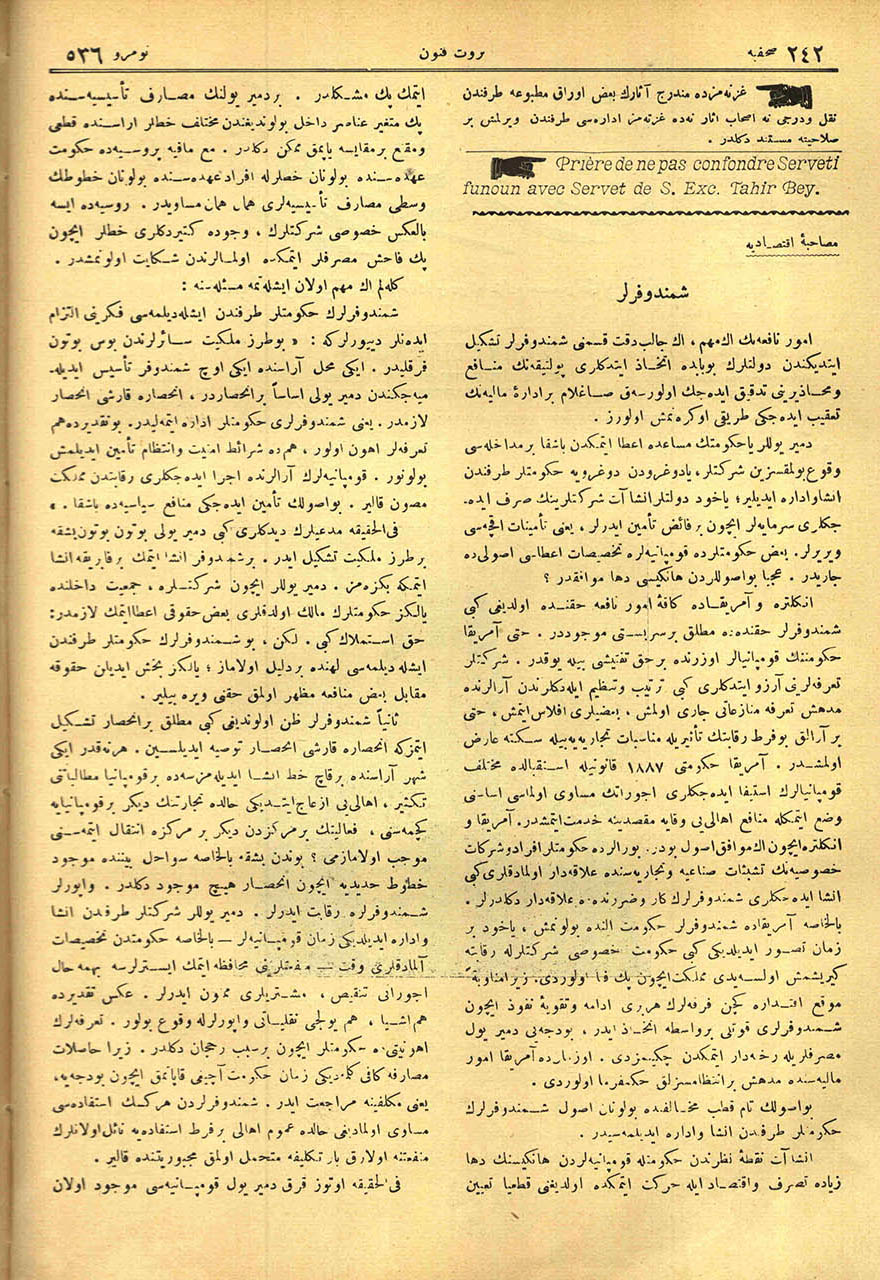 صحفه ٢٤٢
ثروت فنون
نومرو ٥٣٦
غزته‌مزده مندرج آثارك بعض اوراق مطبوعه طرفندن
نقل ودرجی نه اصحاب آثار نه‌ده غزته‌مز اداره‌سی طرفندن ویرلمش بر
صلاحیته مستند دكلدر .
Prière de ne pas confondre Serveti
funoun avec Servet de S. Exc. Tahir Bey.
مصاحبهٔ اقتصادیه
شمندوفرلر
امور نافعه‌نك اك مهم ، اك جالب دقت قسمنی شمندوفرلر تشكیل
ایتدیكندن دولتلرك بوبابده اتخاذ ایتدكلری پولتیقه‌نك منافع
ومحاذیرینی تدقیق ایده‌جك اولورسه‌ق صاغلام براداره مالیه‌نك
تعقیب ایده‌جكی طریقی اوكره‌نمش اولورز .
دمیر یوللر یاحكومتك مساعده اعطا ایتمكدن باشقا برمداخله‌سی
وقوع بولمقسزین شركتلر ، یادوغرودن دوغرویه حكومتلر طرفندن
انشا واداره ایدیلیر ؛ یاخود دولتلر انشاآت شركتلرینك صرف ایده‌-
جكلری سرمایه‌لر ایچون برفائض تأمین ایدرلر ، یعنی تأمینات اقچه‌سی
ویررلر . بعض حكومتلرده قومپانیه‌لره تخصیصات اعطاسی اصولی‌ده
جاریدر . عجبا بواصوللردن هانكیسی دها موافقدر ؟
انكلتره و آمریقاده كافهٔ امور نافعه حقنده اولدیغی كبی
شمندوفرلر حقنده‌ده مطلق برسربستی موجوددر . حتی آمریقا
حكومتنك قومپانیالر اوزرنده برحق تفتیشی بیله یوقدر . شركتلر
تعرفه‌لرینی آرزو ایتدكلری كبی ترتیب وتنظیم ایله‌دكلرندن آرالرنده
مدهش تعرفه منازعاتی جاری اولمش ، بعضیلری افلاس ایتمش ، حتی
بر آرالق بوفرط رقابتك تأثیریله مناسبات تجاریه‌یه بیله سكته عارض
اولمشدر . آمریقا حكومتی ١٨٨٧ قانونیله استقبالده مختلف
قومپانیالرك استیفا ایده‌جكلری اجوراتك مساوی اولماسی اساسنی
وضع ایتمكله منافع اهالی‌یی وقایه مقصدینه خدمت ایتمشدر . آمریقا و
انكلتره ایچون اك موافق اصول بودر . بورالرده حكومتلر افراد و شركات
خصوصیه‌نك تشبثات صناعیه وتجاریه‌سنده علاقه‌دار اولمادقلری كبی
انشا ایده‌جكلری شمندوفرلرك كار وضررنده‌ده علاقه‌دار دكلدرلر .
بالخاصه آمریقاده شمندوفرلر حكومت النده بولونمش ، یاخود بر
زمان تصور ایدیلدیكی كبی حكومت خصوصی شركتلرله رقابته
كیریشمش اولسه‌یدی مملكت ایچون پك فنا اولوردی . زیرا مناوبةً
موقع اقتداره كچن فرقه‌لرك هربری ادامه وتقویهٔ نفوذ ایچون
شمندوفرلری قوتلی برواسطه اتخاذ ایدر ، بودجه‌یی دمیر یول
مصرفلریله رخنه‌دار ایتمكدن چكینمزدی . اوزمان‌ده آمریقا امور
مالیه‌سنده مدهش برانتظامسزلق حكمفرما اولوردی .
بواصولك تام قطب مخالفنده بولونان اصول شمندوفرلرك
حكومتلر طرفندن انشا واداره ایدیلمه‌سیدر .
انشاآت نقطهٔ نظرندن حكومتله قومپانیه‌لردن هانكیسنك دها
زیاده تصرف واقتصاد ایله حركت ایتمكده اولدیغنی قطعیاً تعیین
ایتمك پك مشكلدر . بردمیر یولنك مصارف تأسیسیه‌سنده
پك متغیر عناصر داخل بولوندیغندن مختلف خطلر اراسنده قطعی
ومقنع برمقایسه یاپمق ممكن دكلدر . مع مافیه پروسیه‌ده حكومت
عهده‌سنده بولونان خطلرله افراد عهده‌سنده بولونان خطوطك
وسطی مصارف تأسیسیه‌لری همان همان مساویدر . روسیه‌ده ایسه
بالعكس خصوصی شركتلرك ، وجوده كتیردكلری خطلر ایچون
پك فاحش مصرفلر ایتمكده اولمالرندن شكایت اولونمشدر .
كله‌لم اك مهم اولان ایشله‌تمه مسئله‌سنه :
شمندوفرلرك حكومتلر طرفندن ایشله‌دیلمه‌سی فكرینی التزام
ایده‌نلر دییورلركه : « بوطرز ملكیت سائرلرندن بوس بوتون
فرقلیدر . ایكی محل آراسنده ایكی اوچ شمندوفر تأسیس ایدیله‌-
میه‌جكندن دمیر یولی اساساً برانحصاردر ، انحصاره قارشی انحصار
لازمدر . یعنی شمندوفرلری حكومتلر اداره ایتمه‌لیدر . بوتقدیرده هم
تعرفه‌لر اهون اولور ، هم‌ده شرائط امنیت وانتظام تأمین ایدیلمش
بولونور . قومپانیه‌لرك آرالرنده اجرا ایده‌جكلری رقابتدن مملكت
مصون قالیر . بواصولك تأمین ایده‌جكی منافع سیاسیه‌ده باشقا . »
فی‌الحقیقه مدعیلرك دیدكلری كبی دمیر یولی بوتون بوتون بشقه
بر طرز ملكیت تشكیل ایدر . برشمندوفر انشا ایتمك برفابریقه انشا
ایتمكه بكزه‌مز . دمیر یوللر ایچون شركتلره ، جمعیت داخلنده
یالكز حكومتلرك مالك اولدقلری بعض حقوقی اعطا ایتمك لازمدر :
حق استملاك كبی . لكن ، بو شمندوفرلرك حكومتلر طرفندن
ایشله‌دیلمه‌سی لهنده بردلیل اولاماز ؛ یالكز بخش ایدیلن حقوقه
مقابل بعض منافعه مظهر اولمق حقنی ویره بیلیر .
ثانیاً شمندوفرلر ظن اولوندیغی كبی مطلق برانحصار تشكیل
ایتمزكه انحصاره قارشی انحصار توصیه ایدیلسین . هرنه‌قدر ایكی
شهر آراسنده برقاچ خط انشا ایدیله‌مزسه‌ده برقومپانیا مطالباتی
تكثیر ، اهالی‌یی ازعاج ایتدیكی حالده تجارتك دیكر برقومپانیایه
كچمه‌سنی ، فعالیتك برمركزدن دیكر بر مركزه انتقال ایتمه‌سنی
موجب اولمازمی ؟ بوندن بشقه بالخاصه سواحل بیننده موجود
خطوط حدیدیه ایچون انحصار هیچ موجود دكلدر . واپورلر
شمندوفرلره رقابت ایدرلر . دمیر یوللر شركتلر طرفندن انشا
واداره ایدیلدیكی زمان قومپانیه‌لر — بالخاصه حكومتدن تخصیصات
آلمادقلری وقت — منفعتلرینی محافظه ایتمك ایسترلرسه بهمه حال
اجوراتی تنقیص ، مشتریلری ممنون ایدرلر . عكس تقدیرده
هم اشیا ، هم یولجی نقلیاتی واپورلرله وقوع بولور . تعرفه‌لرك
اهونیتی‌ده حكومتلر ایچون برسبب رجحان دكلدر . زیرا حاصلات
مصارفه كافی كلمدیكی زمان حكومت آچیغی قاپاتمق ایچون بودجه‌یه ،
یعنی مكلفینه مراجعت ایدر . شمندوفرلردن هركسك استفاده‌سی
مساوی اولمادیغی حالده عموم اهالی برفرط استفاده‌یه نائل اولانلرك
منفعتنه اولارق بار تكلیفه متحمل اولمق مجبوریتنده قالیر .
فی‌الحقیقه اوتوز قرق دمیر یول قومپانیه‌سی موجود اولان